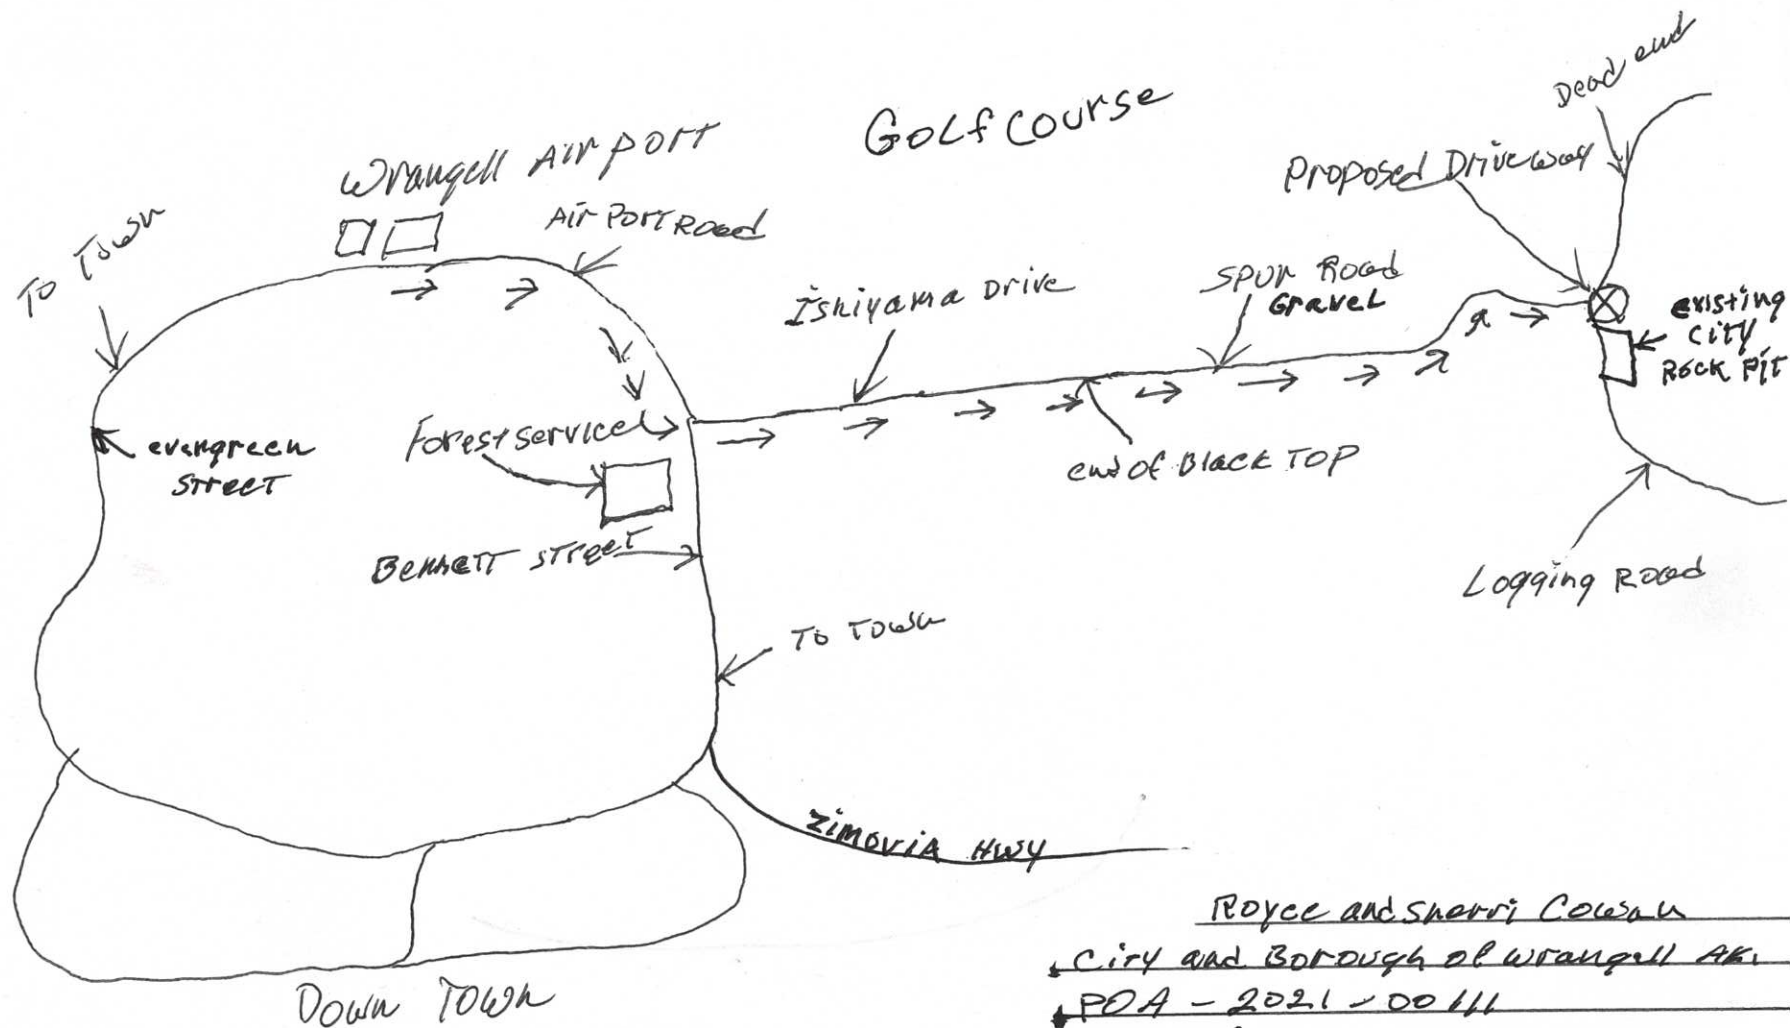 Dead end
Golf course
Wrangell Airport
Proposed Driveway
Airport Road
To Town
Ishiyama Drive
Spur Road
Gravel
existing
City
Rock Pit
evergreen
Street
Forest service
end of Black Top
Bennett Street
Logging Road
To Town
Zimovia Hwy
Royce and Sherri Cowan
City and Borough of Wrangell AK.
POA - 2021 - 00111
Down Town